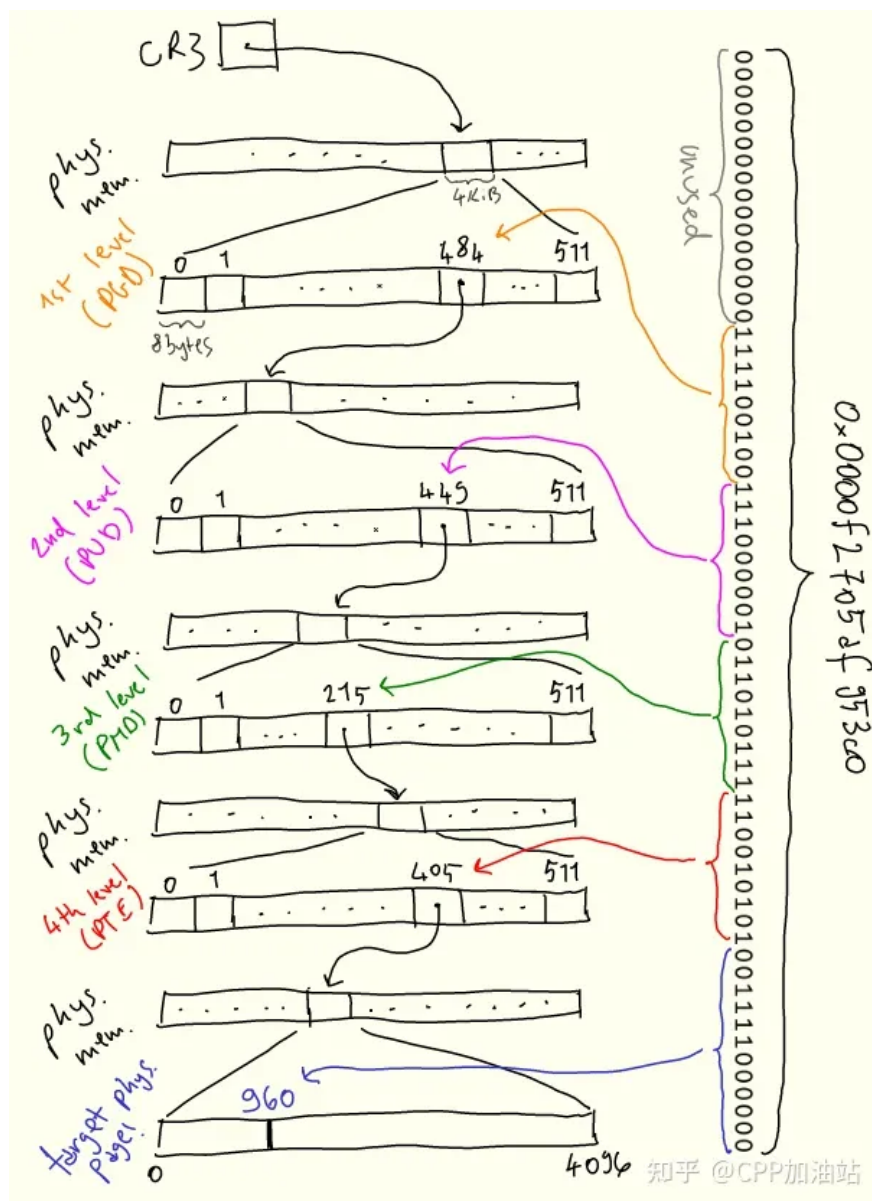 CR3
phys.
mem.
4KiB
unused
1st level
(PGD)
0 1 484 511
8bytes
phys.
mem.
2nd level
(PUD)
0 1 449 511
phys.
mem.
3rd level
(PMD)
0 1 215 511
phys.
mem.
4th level
(PTE)
0 1 405 511
phys.
mem.
target phys.
page!
960
0 4096
0000000000000000111100100111000001011010111110010101001111000000
0x0000f2705af953c0
知乎 @CPP加油站